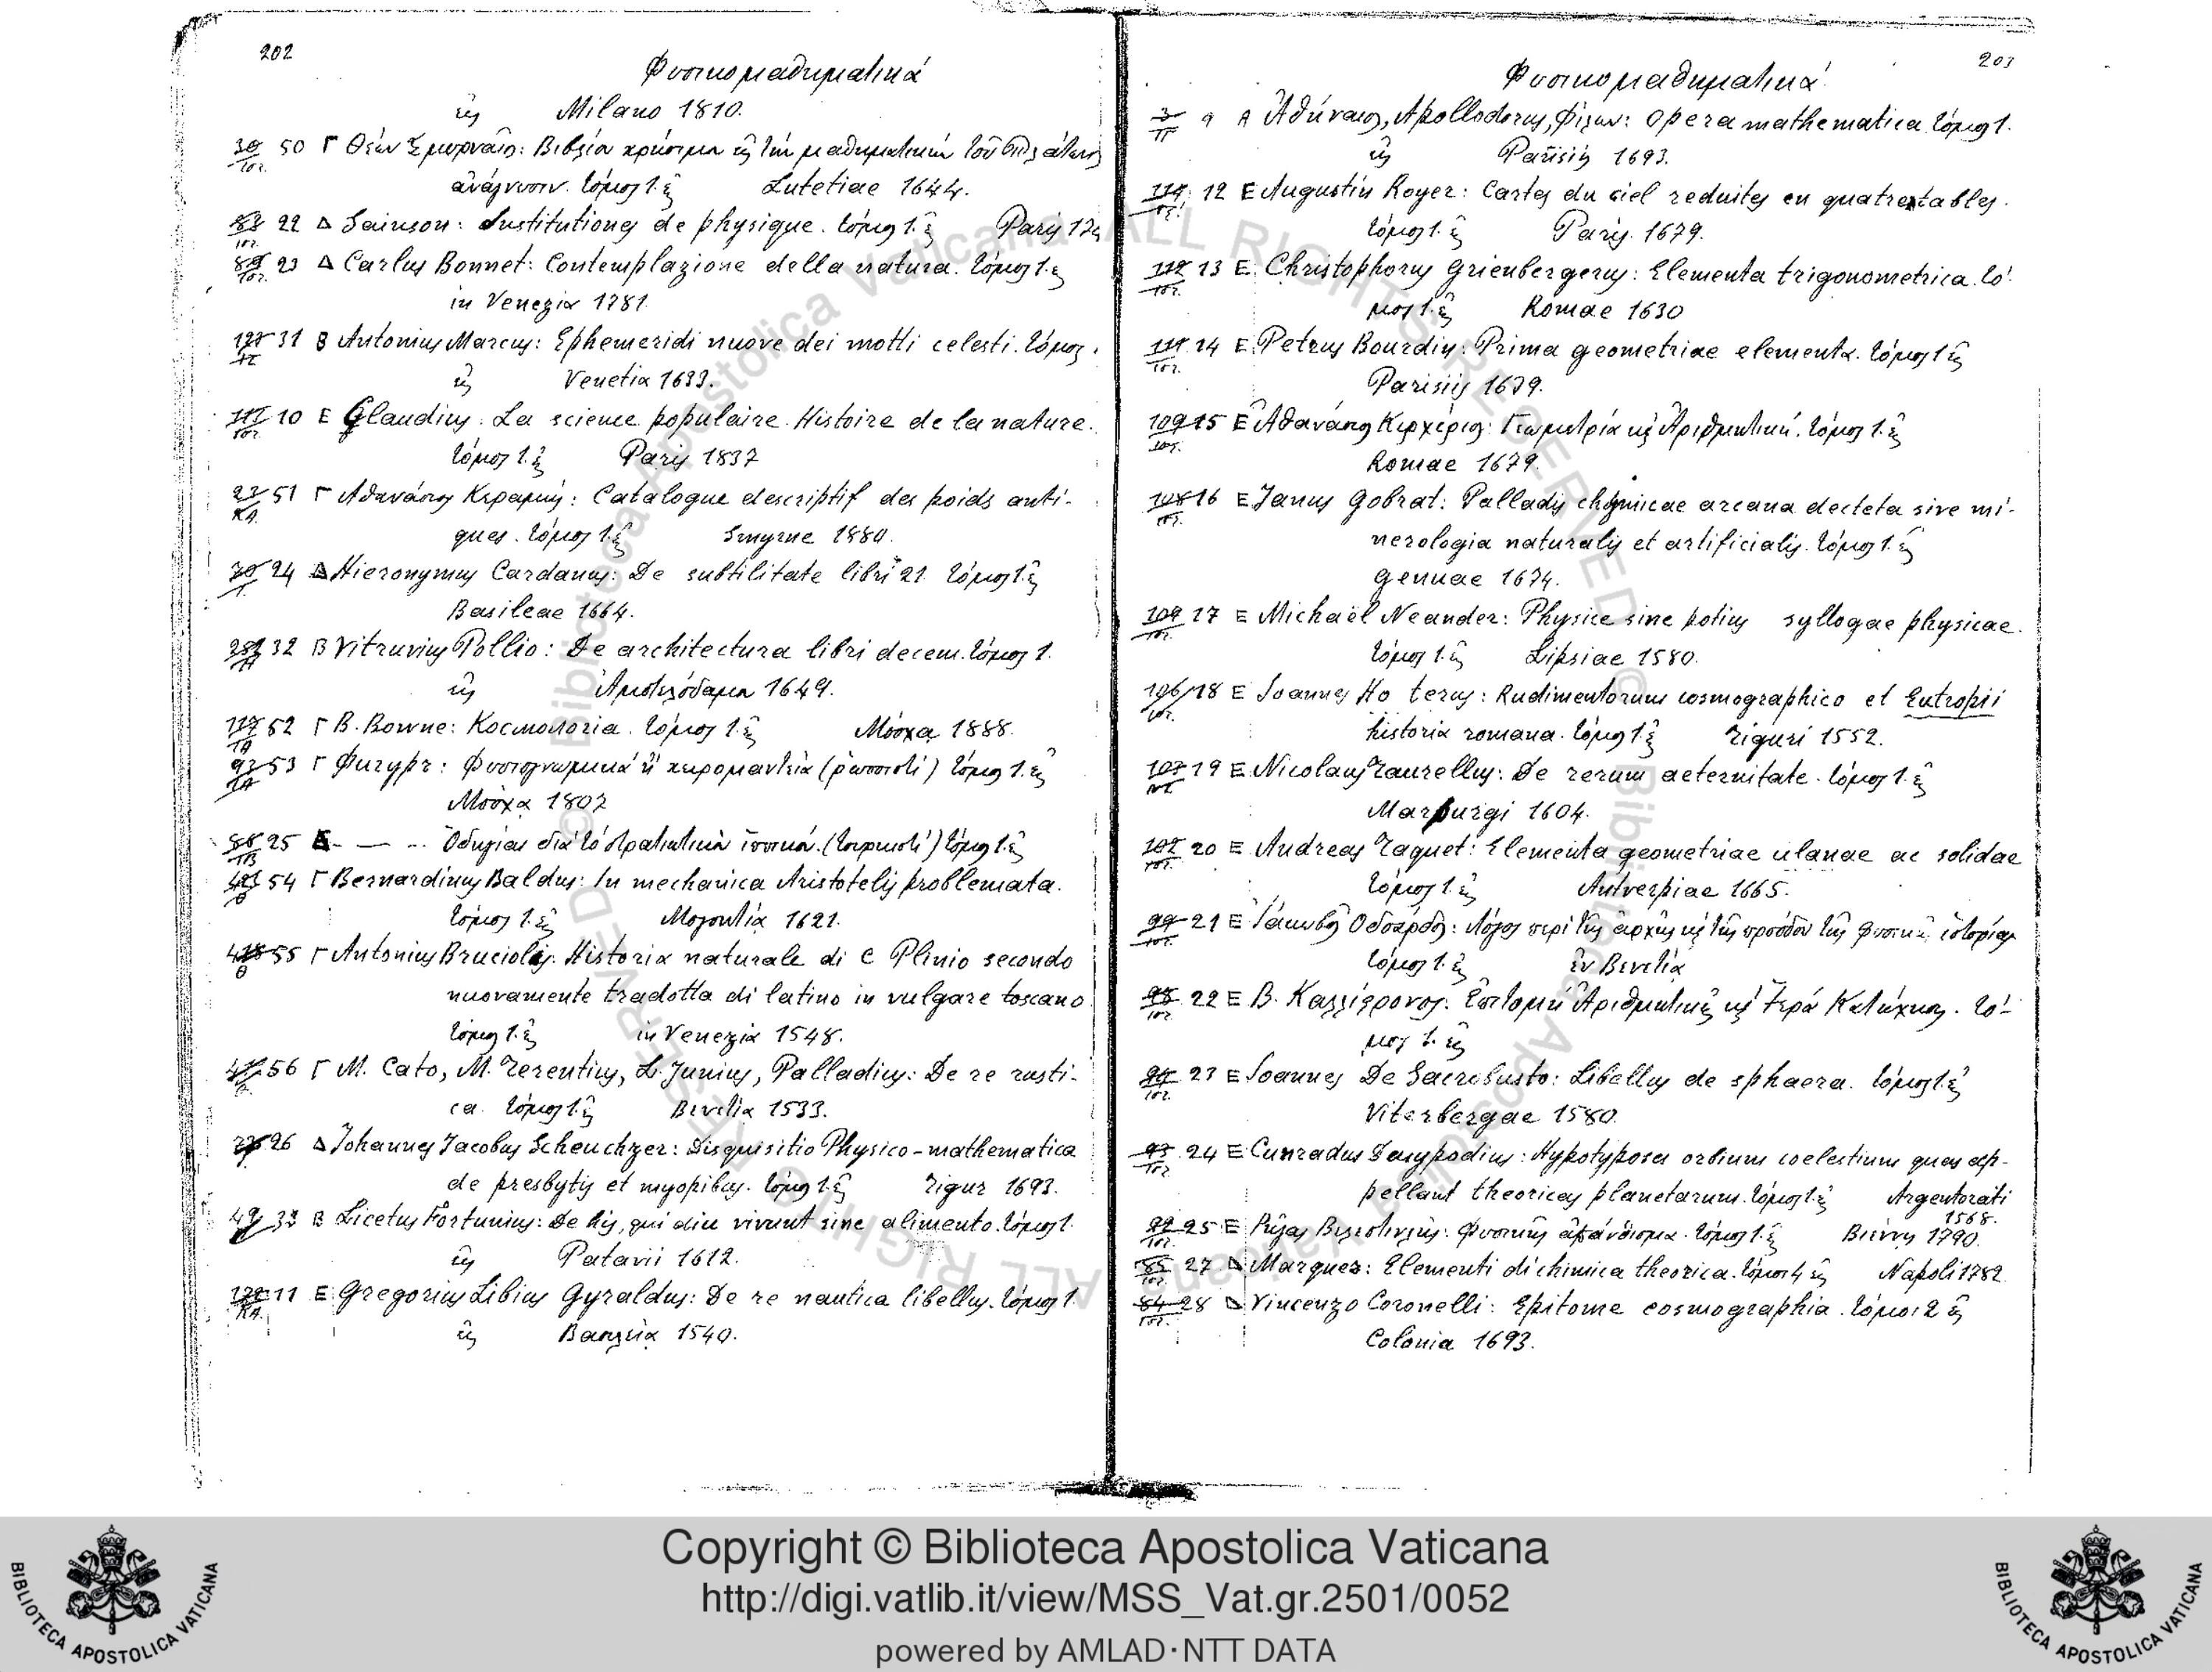 202
Φυσικομαθηματικά
εἰς Milano 1810.
50 Γ Θέων Σμυρναῖος: Βιβλία χρήσιμα εἰς τὴν μαθηματικὴν τοῦ Πλάτωνος
ἀνάγνωσιν. τόμος 1. ἐ Lutetiae 1644.
22 Δ Sainson: Institutiones de physique. τόμος 1. ἐ Paris
23 Δ Carlus Bonnet: Contemplazione della natura. τόμος 1. ἐ
in Venezia 1781
31 Β Antonius Marcus: Ephemeridi nuove dei motti celesti. τόμος
εἰς Venetia 1633.
10 Ε Glaudius: La science populaire. Histoire de la nature.
τόμος 1. ἐ Paris 1837
51 Γ Ἀθανάσιος Κεραμεύς: Catalogue descriptif des poids anti-
ques. τόμος 1. ἐ Smyrne 1880.
24 Δ Hieronymus Cardanus: De subtilitate libri 21 τόμος 1. ἐ
Basileae 1664.
32 Β Vitruvius Pollio: De architectura libri decem. τόμος 1.
εἰς Ἀμστελόδαμα 1649.
52 Γ В. Воггне: Космологіа. τόμος 1. ἐ Μόσχα 1888.
53 Γ Φυσιογνωμικά ἢ χειρομαντεία (ῥωσσιστί) τόμος 1. ἐ
Μόσχα 1807
25 Ὁδηγίαι διὰ τὸ στρατιωτικὸν ἱππικόν. (τουρκιστί) τόμος 1. ἐ
54 Γ Bernardinus Baldus: In mechanica Aristotelis problemata.
τόμος 1. ἐ Μογουντία 1621.
55 Γ Antonius Brucioles. Historia naturale di C Plinio secondo
nuovamente tradotta di latino in vulgare toscano
τόμος 1. ἐ in Venezia 1548.
56 Γ M. Cato, M. Terentius, L. Junius, Palladius: De re rusti-
ca. τόμος 1. ἐ Βενετία 1533.
26 Δ Johannes Jacobus Scheuchzer: Disquisitio Physico-mathematica
de presbytis et myopibus. τόμος 1. ἐ Tigur 1693.
33 Β Licetus Fortunius: De his, qui diu vivunt sine alimento. τόμος 1.
εἰς Patavii 1612.
11 Ε Gregorius Libius Gyraldus: De re nautica libellus. τόμος 1.
εἰς Βασιλεία 1540.
203
Φυσικομαθηματικά
9 Α Ἀθήναιος, Apollodorus, Φίλων: Opera mathematica τόμος 1.
εἰς Parisiis 1693.
12 Ε Augustin Royer: Cartes du ciel reduites en quatre tables.
τόμος 1. ἐ Paris. 1679.
13 Ε Christophorus Grienbergerus: Elementa trigonometrica. τό-
μος 1. ἐ Romae 1630
14 Ε Petrus Bourdin: Prima geometriae elementa. τόμος 1. ἐ
Parisiis 1639.
15 Ε Ἀθανάσιος Κιρχέριος: Γεωμετρία καὶ Ἀριθμητική. τόμος 1. ἐ
Romae 1679.
16 Ε Janus Gobrat: Palladis chymicae arcana decteta sive mi-
nerologia naturalis et artificialis. τόμος 1. ἐ
Genuae 1674.
17 Ε Michaël Neander: Physice sine potius syllogae physicae.
τόμος 1. ἐ Lipsiae 1580.
18 Ε Joannes Ho terus: Rudimentorum cosmographico et Eutropii
historia romana. τόμος 1. ἐ Tiguri 1552.
19 Ε Nicolaus Taurellus: De rerum aeternitate. τόμος 1. ἐ
Marpurgi 1604.
20 Ε Andreas Taquet: Elementa geometriae ulanae ac solidae
τόμος 1. ἐ Antverpiae 1665.
21 Ε Ἰακώβου Ὁδοάρδου: Λόγος περὶ τῆς ἀρχῆς καὶ τῆς προόδου τῆς φυσικῆς ἱστορίας
τόμος 1. ἐ ἐν Βενετία
22 Ε Β. Καλλίφρονος: Ἐπιτομὴ Ἀριθμητικῆς καὶ Ἱερὰ Κατήχησις. τό-
μος 1. εἰς
23 Ε Joannes De Sacrobusto: Libellus de sphaera. τόμος 1. ἐ
Viterbergae 1580.
24 Ε Cunradus Dasypodius: Hypotyposes orbium coelestium quas ap-
pellant theoricas planetarum. τόμος 1. ἐ Argentorati
1568.
25 Ε Ρήγας Βελεστινλῆς: Φυσικῆς ἀπάνθισμα. τόμος 1. ἐ Βιέννη 1790.
27 Δ Marquez: Elementi di chimica theorica. τόμοι 4 ἐ Napoli 1782
28 Δ Vincenzo Coronelli: Epitome cosmographia. τόμοι 2 ἐ
Colonia 1693.
© Biblioteca Apostolica Vaticana ALL RIGHTS RESERVED
Copyright © Biblioteca Apostolica Vaticana
http://digi.vatlib.it/view/MSS_Vat.gr.2501/0052
powered by AMLAD·NTT DATA
BIBLIOTECA APOSTOLICA VATICANA
BIBLIOTECA APOSTOLICA VATICANA